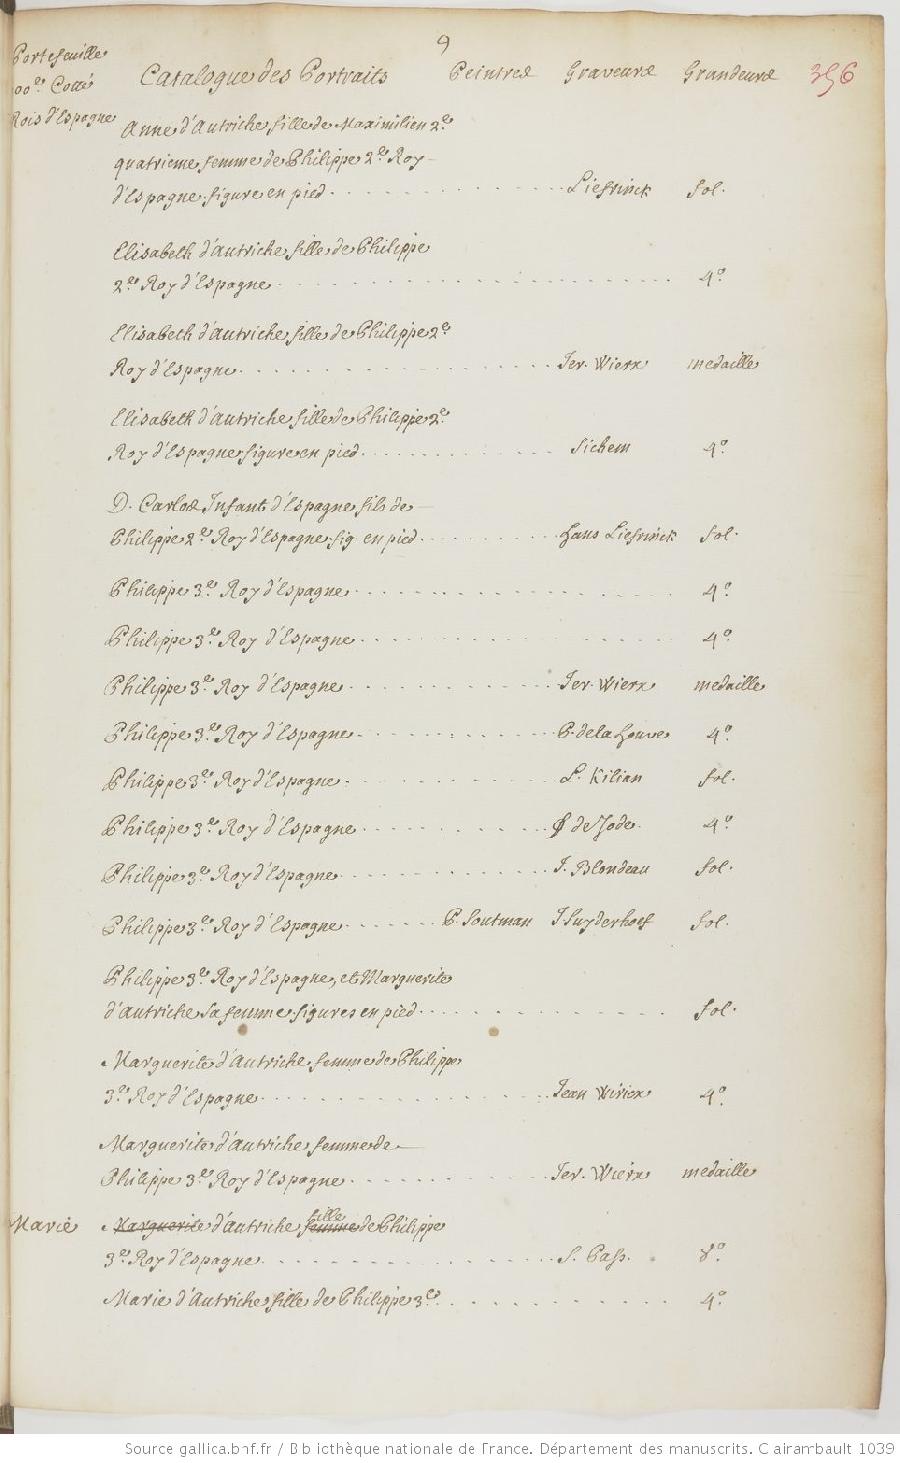 9
Portefeuille
Cotté
Rois d'Espagne
Catalogue des Portraits Peintres Graveurs Grandeurs 356
Anne d'Autriche fille de Maximilien 2.e
quatrieme femme de Philippe 2.e Roy
d'Espagne. figure en pied Liefrinck fol.
Elisabeth d'autriche fille de Philippe
2.e Roy d'Espagne 4.o
Elisabeth d'autriche fille de Philippe 2.e
Roy d'Espagne Jer. Wierx medaille
Elisabeth d'Autriche fille de Philippe 2.e
Roy d'Espagne figure en pied Sichem 4.o
D. Carlos Infant d'Espagne fils de
Philippe 2.e Roy d'Espagne. fig en pied Hans Liefrinck fol.
Philippe 3.e Roy d'Espagne 4.o
Philippe 3.e Roy d'Espagne 4.o
Philippe 3.e Roy d'Espagne Jer. Wierx medaille
Philippe 3.e Roy d'Espagne P. de la Houve 4.o
Philippe 3.e Roy d'Espagne L. Kilian fol.
Philippe 3.e Roy d'Espagne de Jode 4.o
Philippe 3.e Roy d'Espagne J. Blondeau fol.
Philippe 3.e Roy d'Espagne P. Soutman J. Suyderhoef fol.
Philippe 3.e Roy d'Espagne, et Marguerite
d'autriche sa femme. figures en pied fol.
Marguerite d'Autriche femme de Philippe
3.e Roy d'Espagne Jean Wiriex 4.o
Marguerite d'Autriche femme de
Philippe 3.e Roy d'Espagne Jer. Wierx medaille
Marie Marguerite d'autriche femme fille de Philippe
3.e Roy d'Espagne S. Pass. 8.o
Marie d'Autriche fille de Philippe 3.e 4.o
Source gallica.bnf.fr / Bibliothèque nationale de France. Département des manuscrits. Clairambault 1039